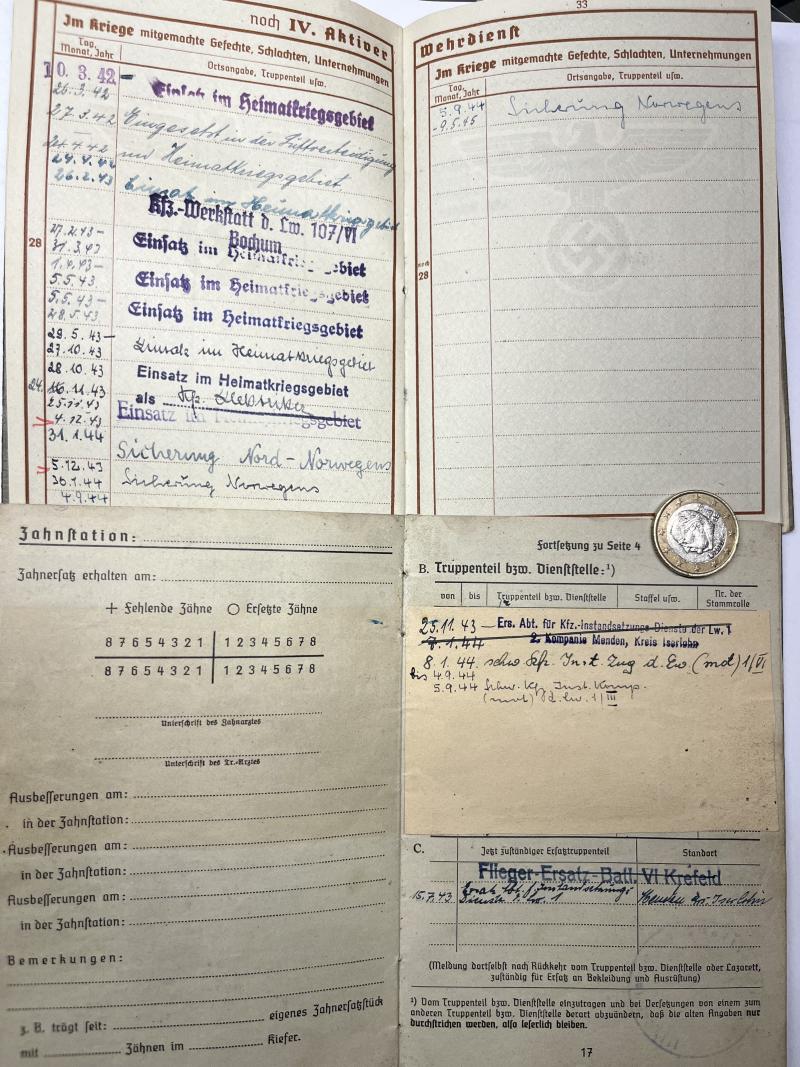 noch IV. Aktiver
Im Kriege mitgemachte Gefechte, Schlachten, Unternehmungen
Tag, Monat, Jahr
Ortsangabe, Truppenteil usw.
10.3.42 -
26.3.42
Einsatz im Heimatkriegsgebiet
27.3.42
Eingesetzt in der Luftverteidigung
24.4.42
im Heimatkriegsgebiet
24.4.42
26.2.43
Einsatz im Heimatkriegsgebiet
Kfz.-Werkstatt d. Lw. 107/VI
Bochum
27.2.43 -
28
31.3.43
Einsatz im Heimatkriegsgebiet
1.4.43 -
5.5.43
Einsatz im Heimatkriegsgebiet
5.5.43 -
28.5.43
Einsatz im Heimatkriegsgebiet
29.5.43 -
27.10.43
Einsatz im Heimatkriegsgebiet
28.10.43
24. 16.11.43
Einsatz im Heimatkriegsgebiet
als Kfz. Elektriker
25.11.43
4.12.43
Einsatz im Heimatkriegsgebiet
31.1.44
Sicherung Nord-Norwegens
5.12.43
30.1.44
Sicherung Norwegens
4.9.44
33
Wehrdienst
Im Kriege mitgemachte Gefechte, Schlachten, Unternehmungen
Tag, Monat, Jahr
Ortsangabe, Truppenteil usw.
5.9.44
- 9.5.45
Sicherung Norwegens
noch
28
Zahnstation:
Zahnersatz erhalten am:
+ Fehlende Zähne O Ersetzte Zähne
8 7 6 5 4 3 2 1 1 2 3 4 5 6 7 8
8 7 6 5 4 3 2 1 1 2 3 4 5 6 7 8
Unterschrift des Zahnarztes
Unterschrift des Tr.-Arztes
Ausbesserungen am:
in der Zahnstation:
Ausbesserungen am:
in der Zahnstation:
Ausbesserungen am:
in der Zahnstation:
Bemerkungen:
z. B. trägt seit: eigenes Zahnersatzstück
mit Zähnen im Kiefer.
Fortsetzung zu Seite 4
B. Truppenteil bzw. Dienststelle:¹)
von bis Truppenteil bzw. Dienststelle Staffel usw. Nr. der Stammrolle
25.11.43 - Ers. Abt. für Kfz.-Instandsetzungs-Dienste der Lw. 1
7.1.44 2. Kompanie Menden, Kreis Iserlohn
8.1.44. schw. Kfz. Inst. Zug d. Lw. (mot) 1/VI
bis 4.9.44
5.9.44 Schw. Kfz. Inst. Komp.
(mot) d. Lw. 1/III
C. Jetzt zuständiger Ersatztruppenteil Standort
Flieger-Ersatz-Batl. VI Krefeld
15.7.43 Ersatz Abt. f. Instandsetzungs
Dienste d. Lw. 1 Menden Kr. Iserlohn
(Meldung dortselbst nach Rückkehr vom Truppenteil bzw. Dienststelle oder Lazarett,
zuständig für Ersatz an Bekleidung und Ausrüstung)
¹) Vom Truppenteil bzw. Dienststelle einzutragen und bei Versetzungen von einem zum
anderen Truppenteil bzw. Dienststelle derart abzuändern, daß die alten Angaben nur
durchstrichen werden, also leserlich bleiben.
17